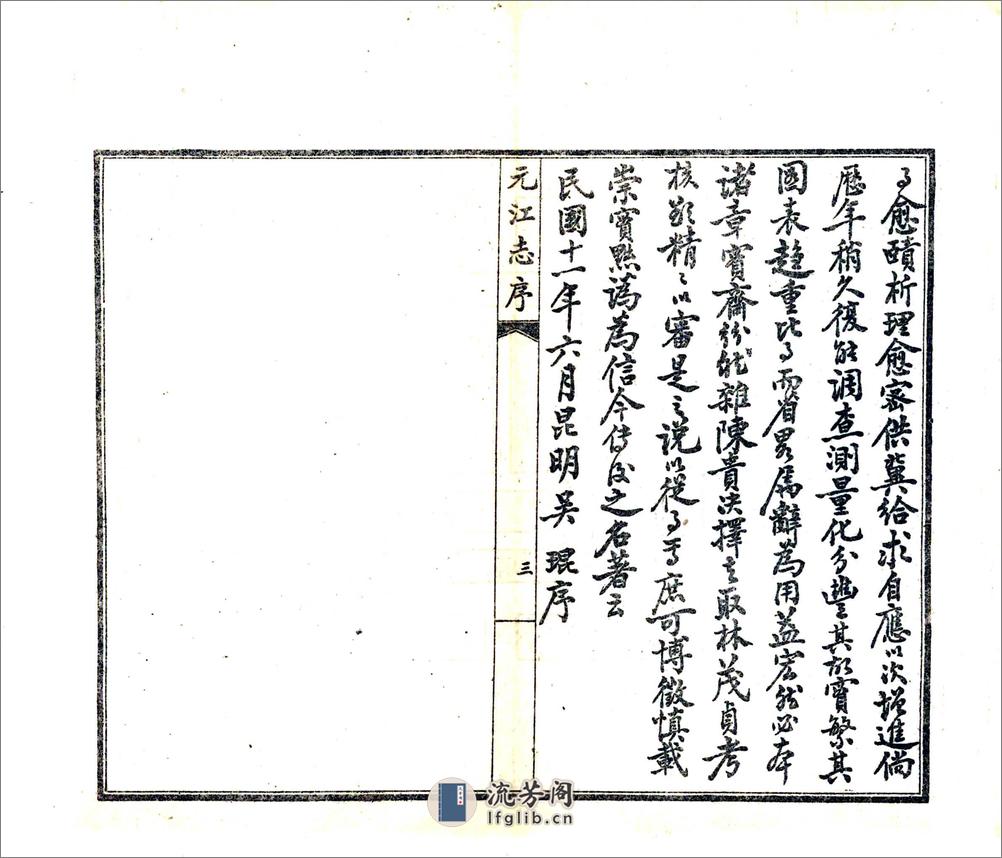 事愈賾析理愈密供冀給求自應以次增進倘
歷年稍久復能調查測量化分豐其故實繁其
圖表趨重比事而省畧屬辭為用益宏然必本
諸章實齋紛然雜陳貴決擇之取林茂貞考
核欵精之以審是之說以從事焉庶可博徵慎載
崇實黜譌為信今傳後之名著云
民國十一年六月昆明吳 琨序
元江志序
三
流芳阁
lfglib.cn